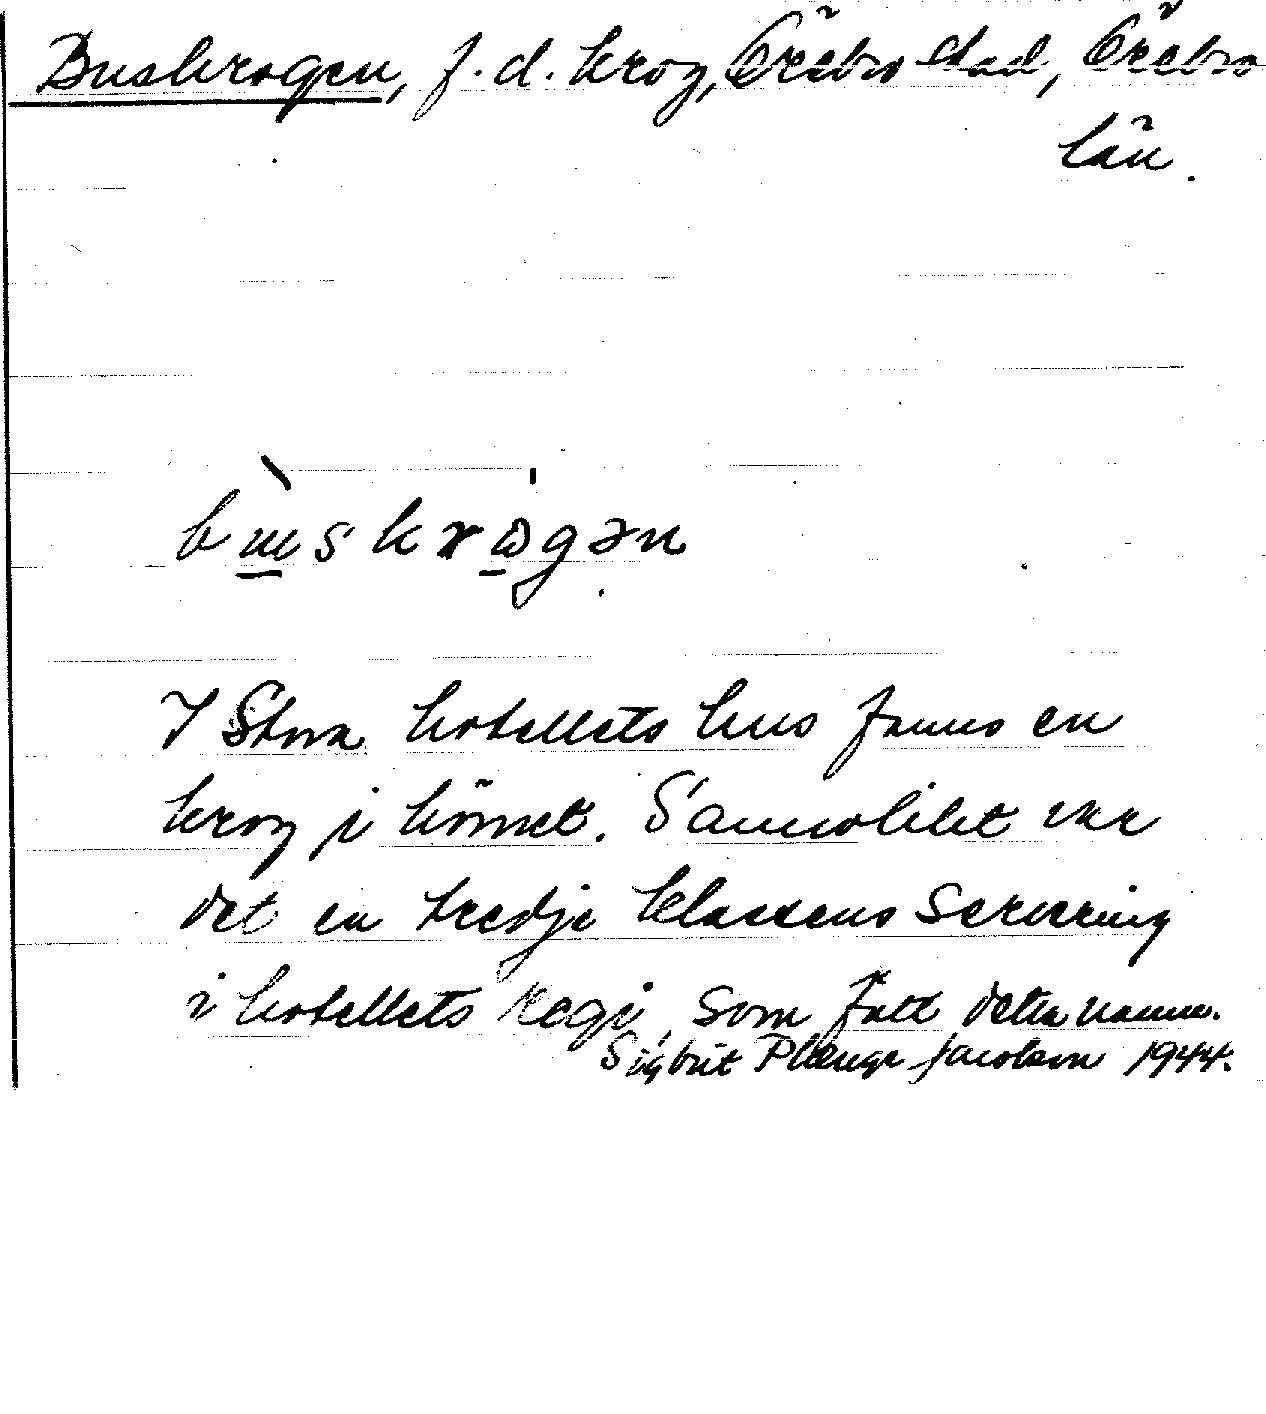 Buskrogen, f.d. krog, Örebro stad, Örebro
län.
buskrogən
I Stora hotellets hus fanns en
krog i hörnet. Sannolikt var
det en tredje klassens servering
i hotellets regi, som fått detta namn.
Sigbrit Plænge Jacobson 1944.